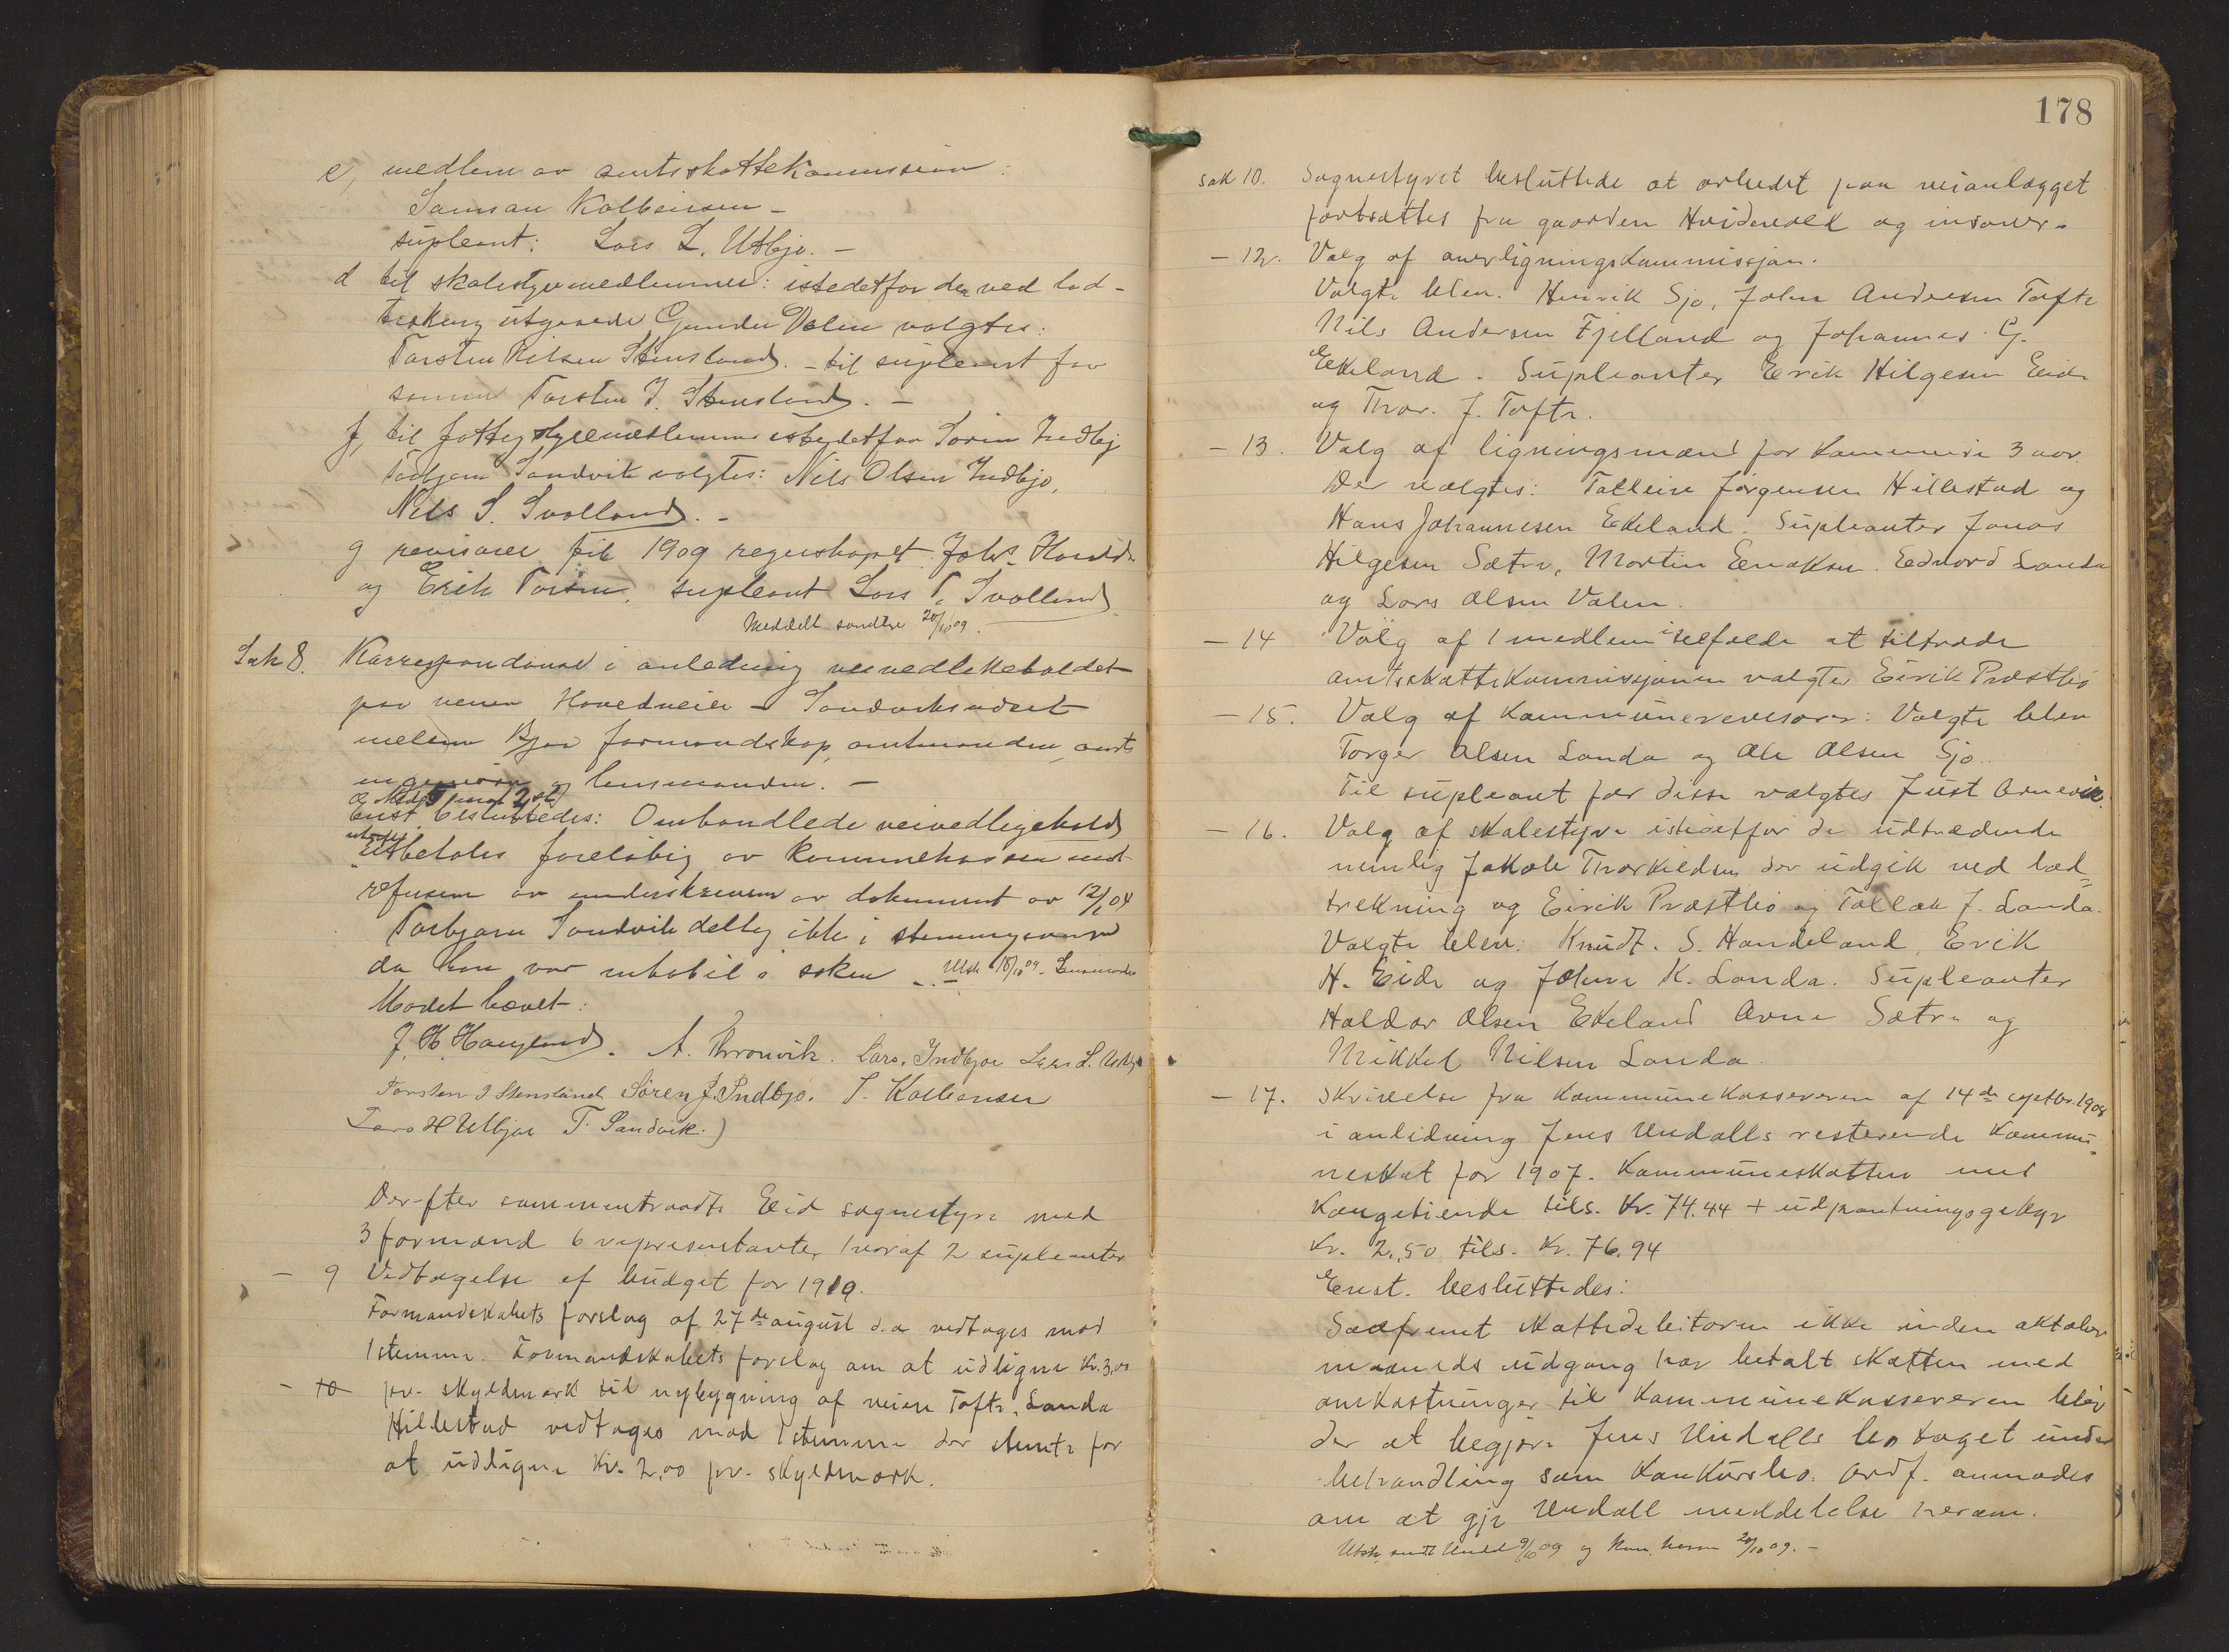 e, medlem av amtsskattekommission:
Samson Kolbeinsen -
supleant: Lars L. Utbjo. -
d til skolestyremedlemmer: istedetfor den ved lod-
trekning utgaaede Gunder Valen valgtes:
Torsten Nilsen Stensland. - til supleant for
samme Torsten J. Stensland. -
f, til fattigstyremedlemmer istedetfor Sørin Indbjo
Torbjørn Sandvik valgtes: Nils Olsen Indbjo,
Nils S. Svolland. -
g revisorer til 1909 regnskapet Johs.
og Erik Torsen, supleant Lars T. Svolland
Meddelt samtlige 20/10 09.
Sak 8. Korrespondanse i anledning veivedlikeholdet
paa veien Hovedveien - Sandviksvaset
mellem Bjoa formandskap, amtmanden, amts
ingeniøren og lensmanden. -
Enst besluttedes: Omhandlede veivedligehold
utbetales foreløbig av kommunekassen mot
refusion av underskriverne av dokument av 12/1 04
Torbjørn Sandvik deltog ikke i stemmegivningen
da han var inhabil i saken - Utsk 18/10 09. Lensmanden
Mødet hævet:
J. H. Haugland. A. Thronvik. Lars. Indbjoe Lars L. Utbjo
Torsten J Stensland Søren J. Indbjo. S. Kolbensen
Lars H Utbjoe T. Sandvik.)
Derefter sammentraadte Eid sognestyre med
3 formænd 6 representanter hvoraf 2 supleanter
- 9 Vedtagelse af budget for 1910.
Formandskabets forslag af 27de august d.a vedtages mod
1 stemme. Formandskabets forslag om at udligne Kr. 3,00
- 10 pr. skyldmark til nybygning af veien Tofte, Landa
Hillestad vedtages mod 1 stemme der stemte for
at udligne Kr. 2,00 pr. skyldmark.
178
Sak 10. Sognestyret besluttede at arbeidet paa veianlægget
fortsættes fra gaarden Hvidevold og indover.
- 12. Valg af overligningskommissjon.
Valgte blev. Henrik Sjo, John Andersen Tofte
Nils Andersen Fjelland og Johannes G.
Ekeland. Supleanter Erik Hilgesen Eide
og Thor. J. Tofte.
- 13. Valg af ligningsmænd for kommende 3 aar.
Der valgtes: Tolleiv Jørgensen Hillestad og
Hans Johannesen Ekeland. Supleanter Jonas
Hilgesen Sætre, Martin Eriksen. Edvard Landa
og Lars Olsen Valen.
- 14 Valg af 1 medlem i tilfælde at tiltræde
amtsskattekommissjonen valgtes Eirik Præstbø
- 15. Valg af kommunerevisorer: Valgte blev
Torger Olsen Landa og Ole Olsen Sjo.
Til supleant for disse valgtes Just Arnevik.
- 16. Valg af skolestyre istedetfor de udtrædende
nemlig Jakob Thorkildsen der udgik ved lod-
trekning og Eirik Præstbø og Tollak J. Landa.
Valgte blev: Knudt. S. Handeland, Erik
H. Eide og Johan K. Landa. Supleanter
Haldor Olsen Ekeland Arne Sætre og
Mikkel Nilsen Landa.
- 17. Skrivelse fra kommunekassereren af 14de septbr. 1908
i anledning Jens Undalls resterende kommu-
neskat for 1907. Kommuneskatten med
Kongetiende tils. Kr. 74.44 + udpantningsgebyr
Kr. 2,50 tils. Kr. 76,94
Enst. besluttedes:
Saafremt skattedebitoren ikke inden oktober
maaneds udgang har betalt skatten med
omkostninger til kommunekassereren blir
der at begjære Jens Undalls bo taget under
behandling som konkursbo. Ordf. anmodes
om at gje Undall meddelelse herom.
Utsk. sendt Undal 9/10 09 og kom. kasse 20/10 09. -